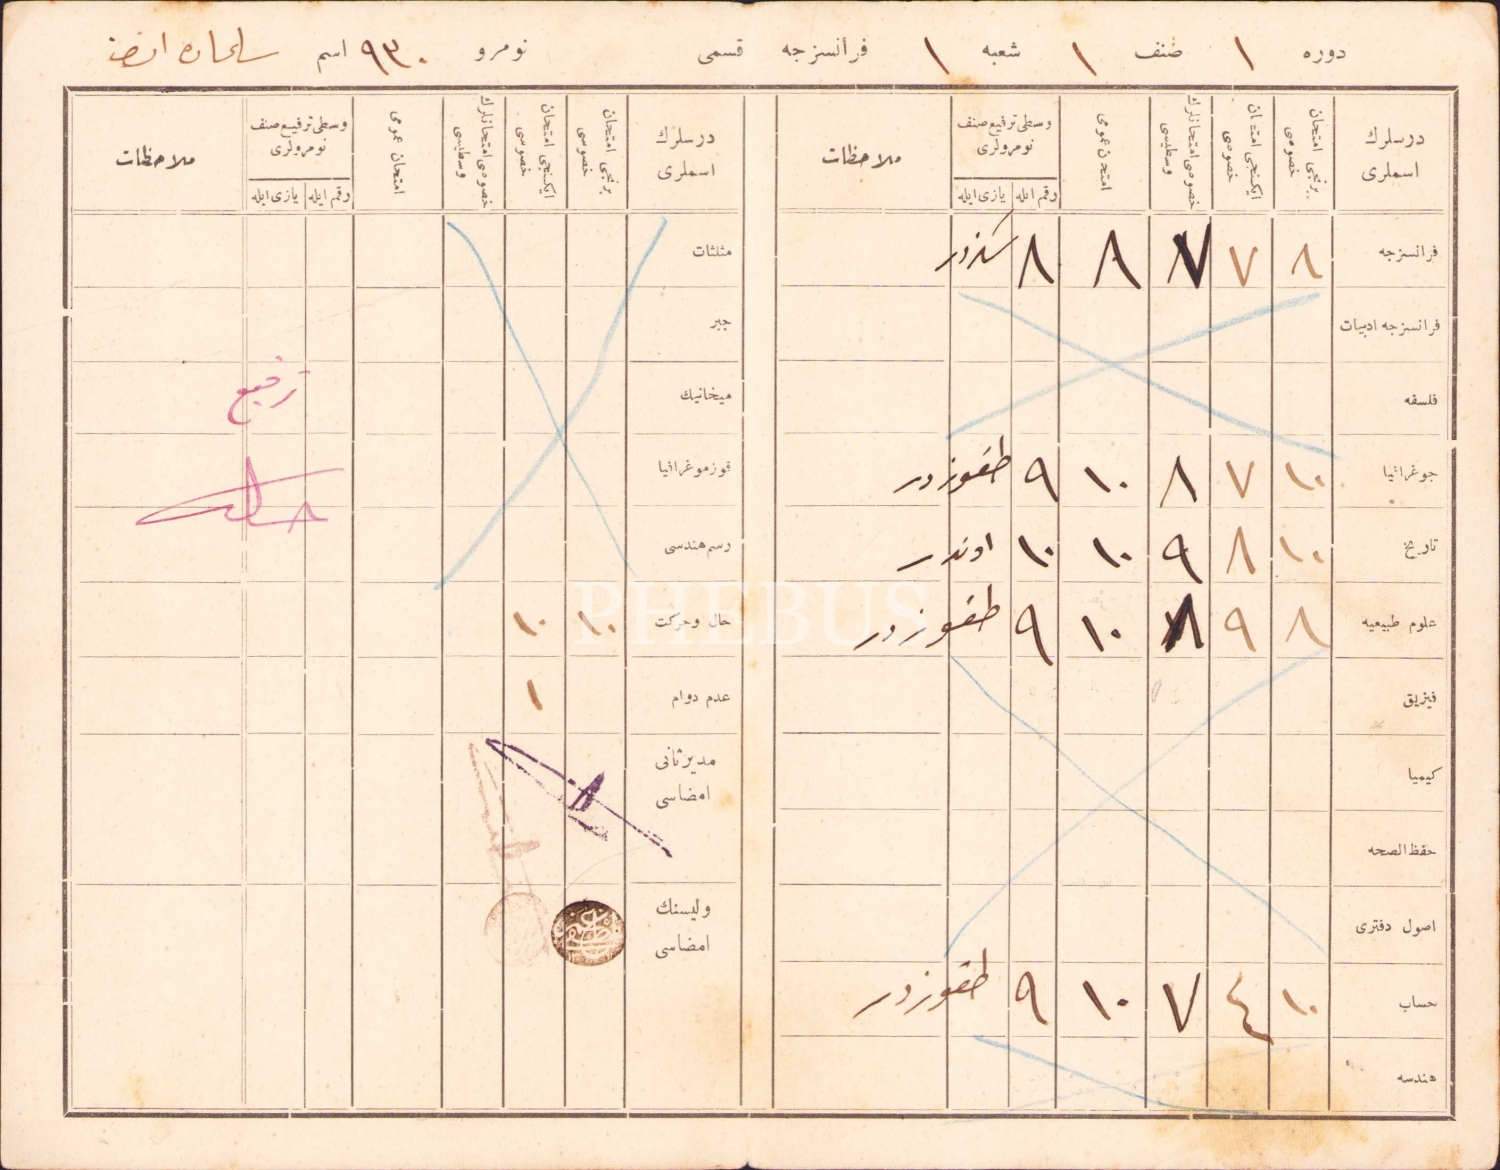 دوره ١ صنف ١ شعبه ١ فرانسزجه قسمی نومرو ٩٣٠ اسم
درسلرك اسملری
برنجی امتحان خصوصی
ایکنجی امتحان خصوصی
خصوصی امتحانلرك وسطیسی
امتحان عمومی
وسطی ترفیع صنف نومرولری
رقم ایله یازی ایله
ملاحظات
فرانسزجه ٨ ٧ ٨ ٨ سکزدر
فرانسزجه ادبیات
فلسفه
جوغرافیا ١٠ ٧ ٨ ١٠ ٩ طقوزدر
تاریخ ١٠ ٨ ٩ ١٠ ١٠ اوندر
علوم طبیعیه ٨ ٩ ٨ ١٠ ٩ طقوزدر
فیزیق
کیمیا
حفظ الصحه
اصول دفتری
حساب ١٠ ٤ ٧ ١٠ ٩ طقوزدر
هندسه
درسلرك اسملری
برنجی امتحان خصوصی
ایکنجی امتحان خصوصی
خصوصی امتحانلرك وسطیسی
امتحان عمومی
وسطی ترفیع صنف نومرولری
رقم ایله یازی ایله
ملاحظات
مثلثات
جبر
میخانیك
قوزموغرافیا
رسم هندسی
حال وحرکت ١٠ ١٠
عدم دوام ١
مدیر ثانی امضاسی
ولیسنك امضاسی
ترفیع
PHEBUS